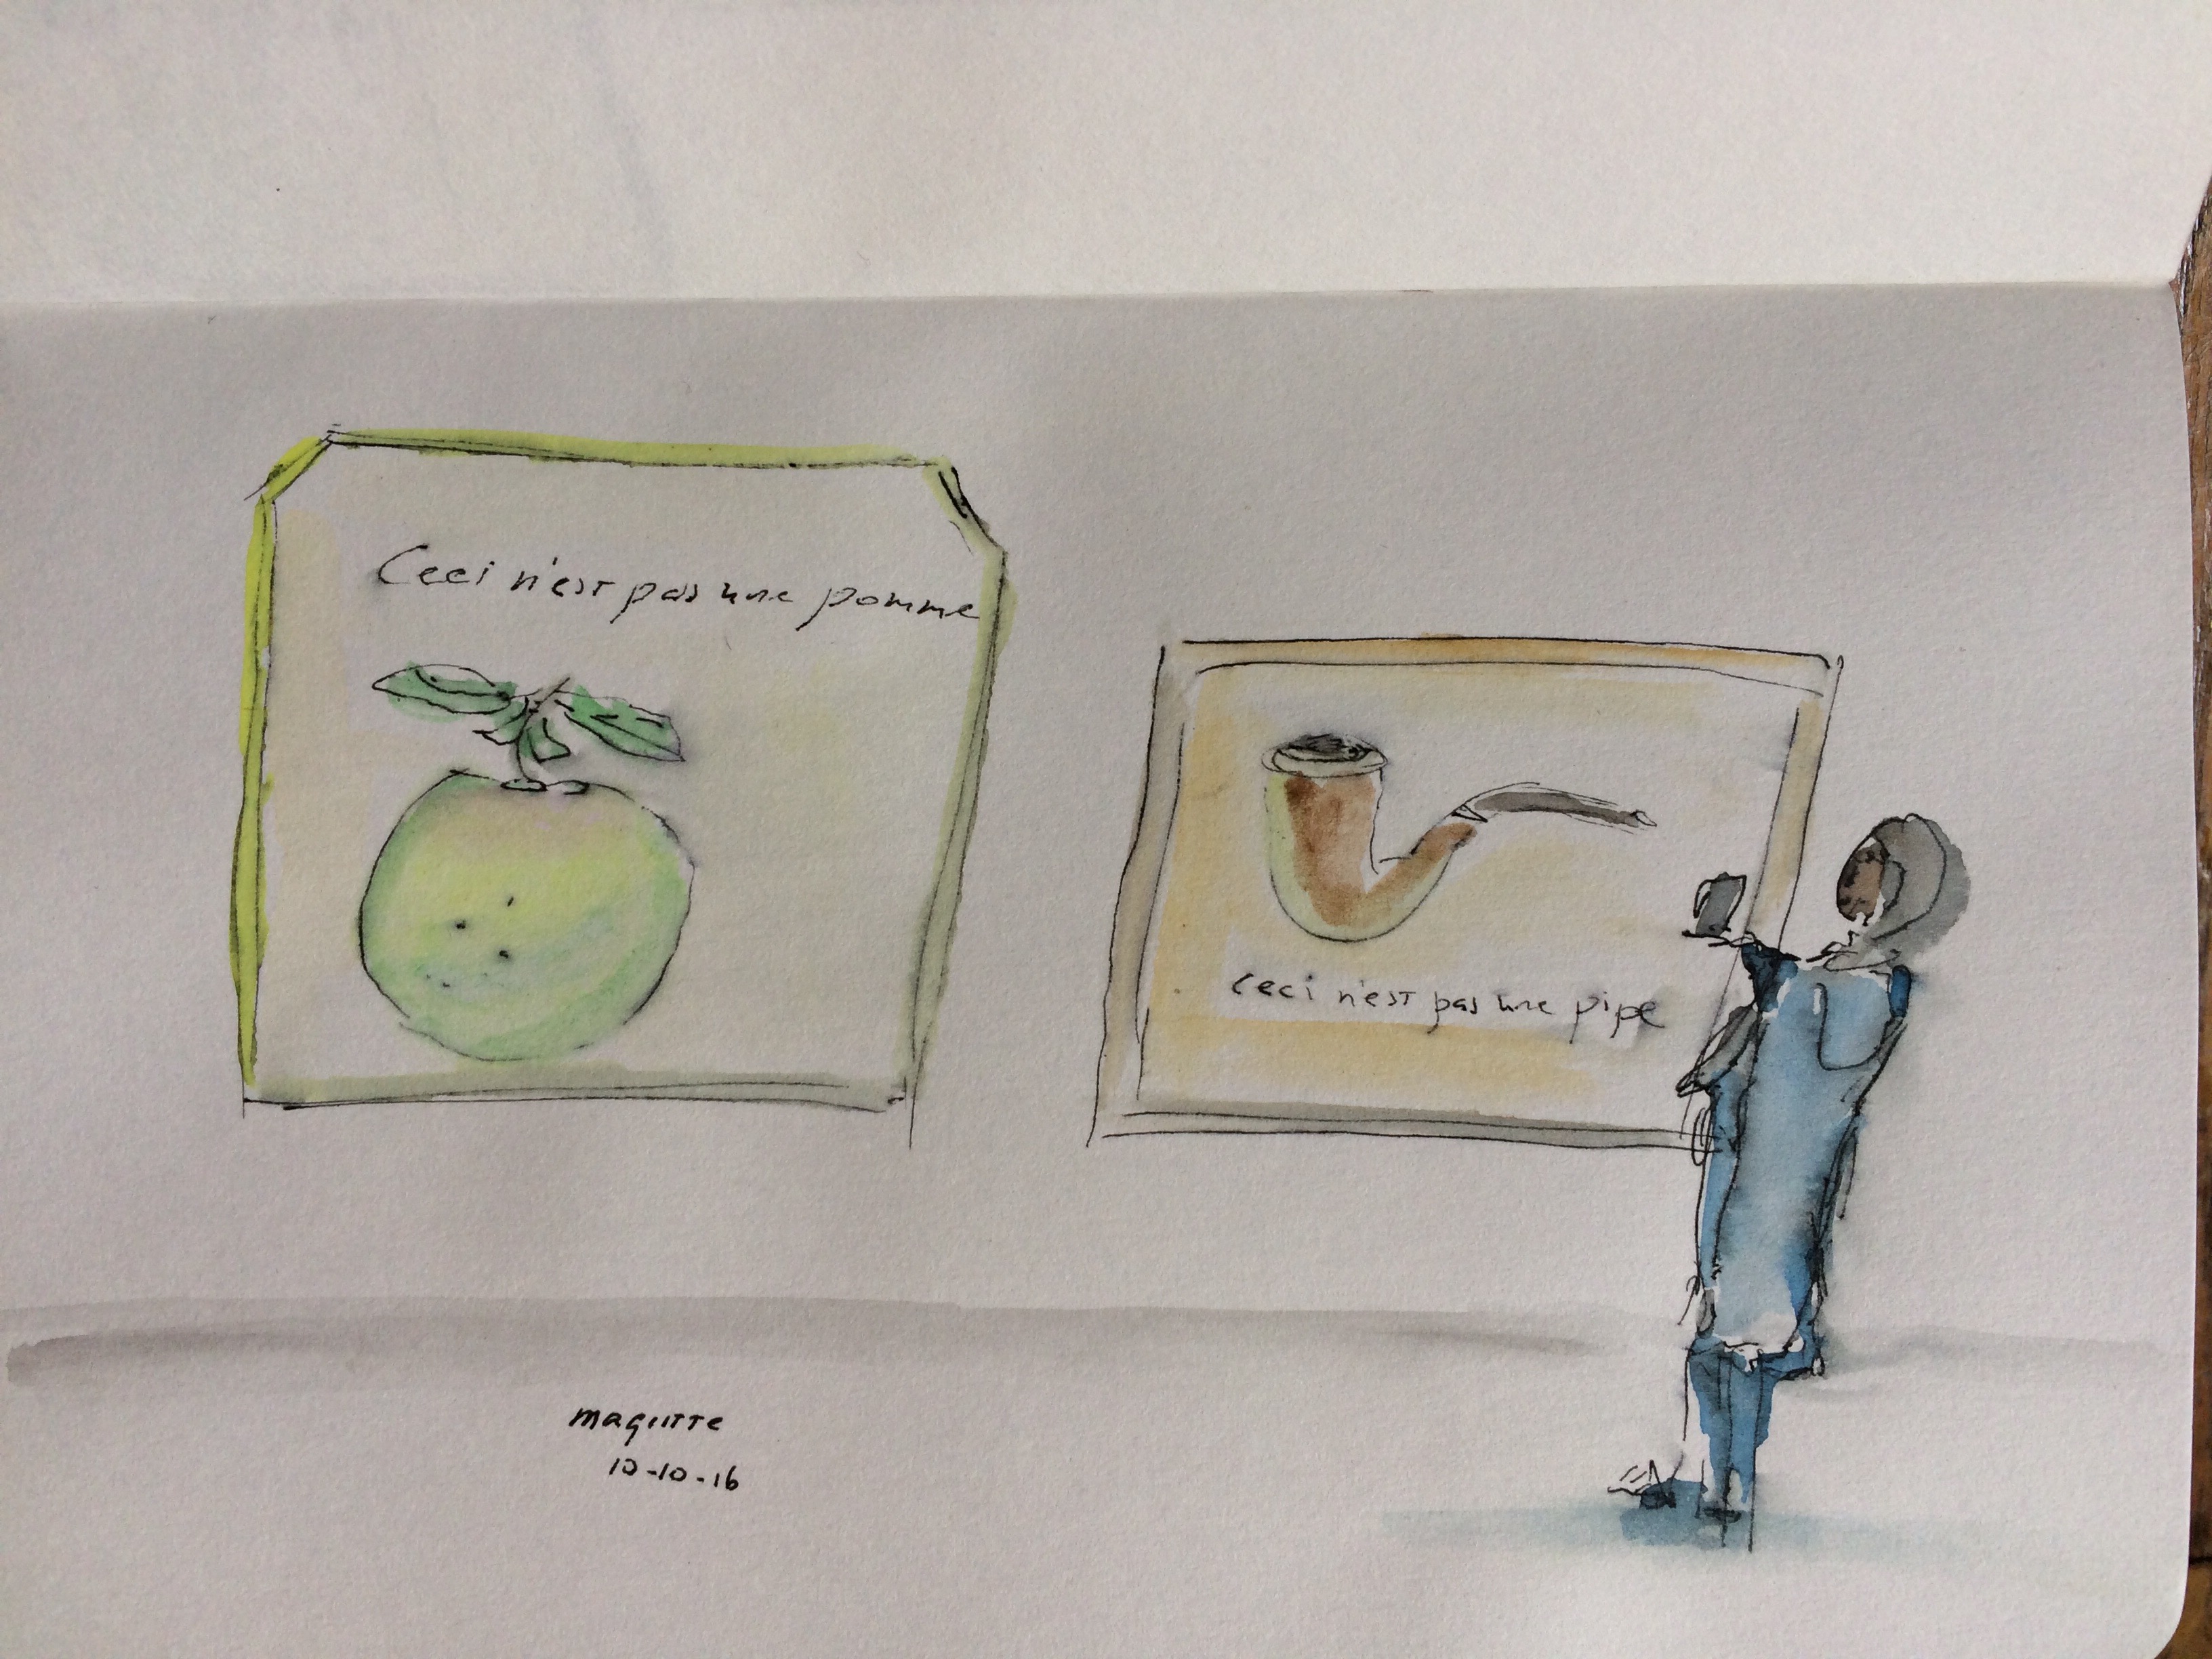 Ceci n'est pas une pomme
Ceci n'est pas une pipe
magritte
10-10-16